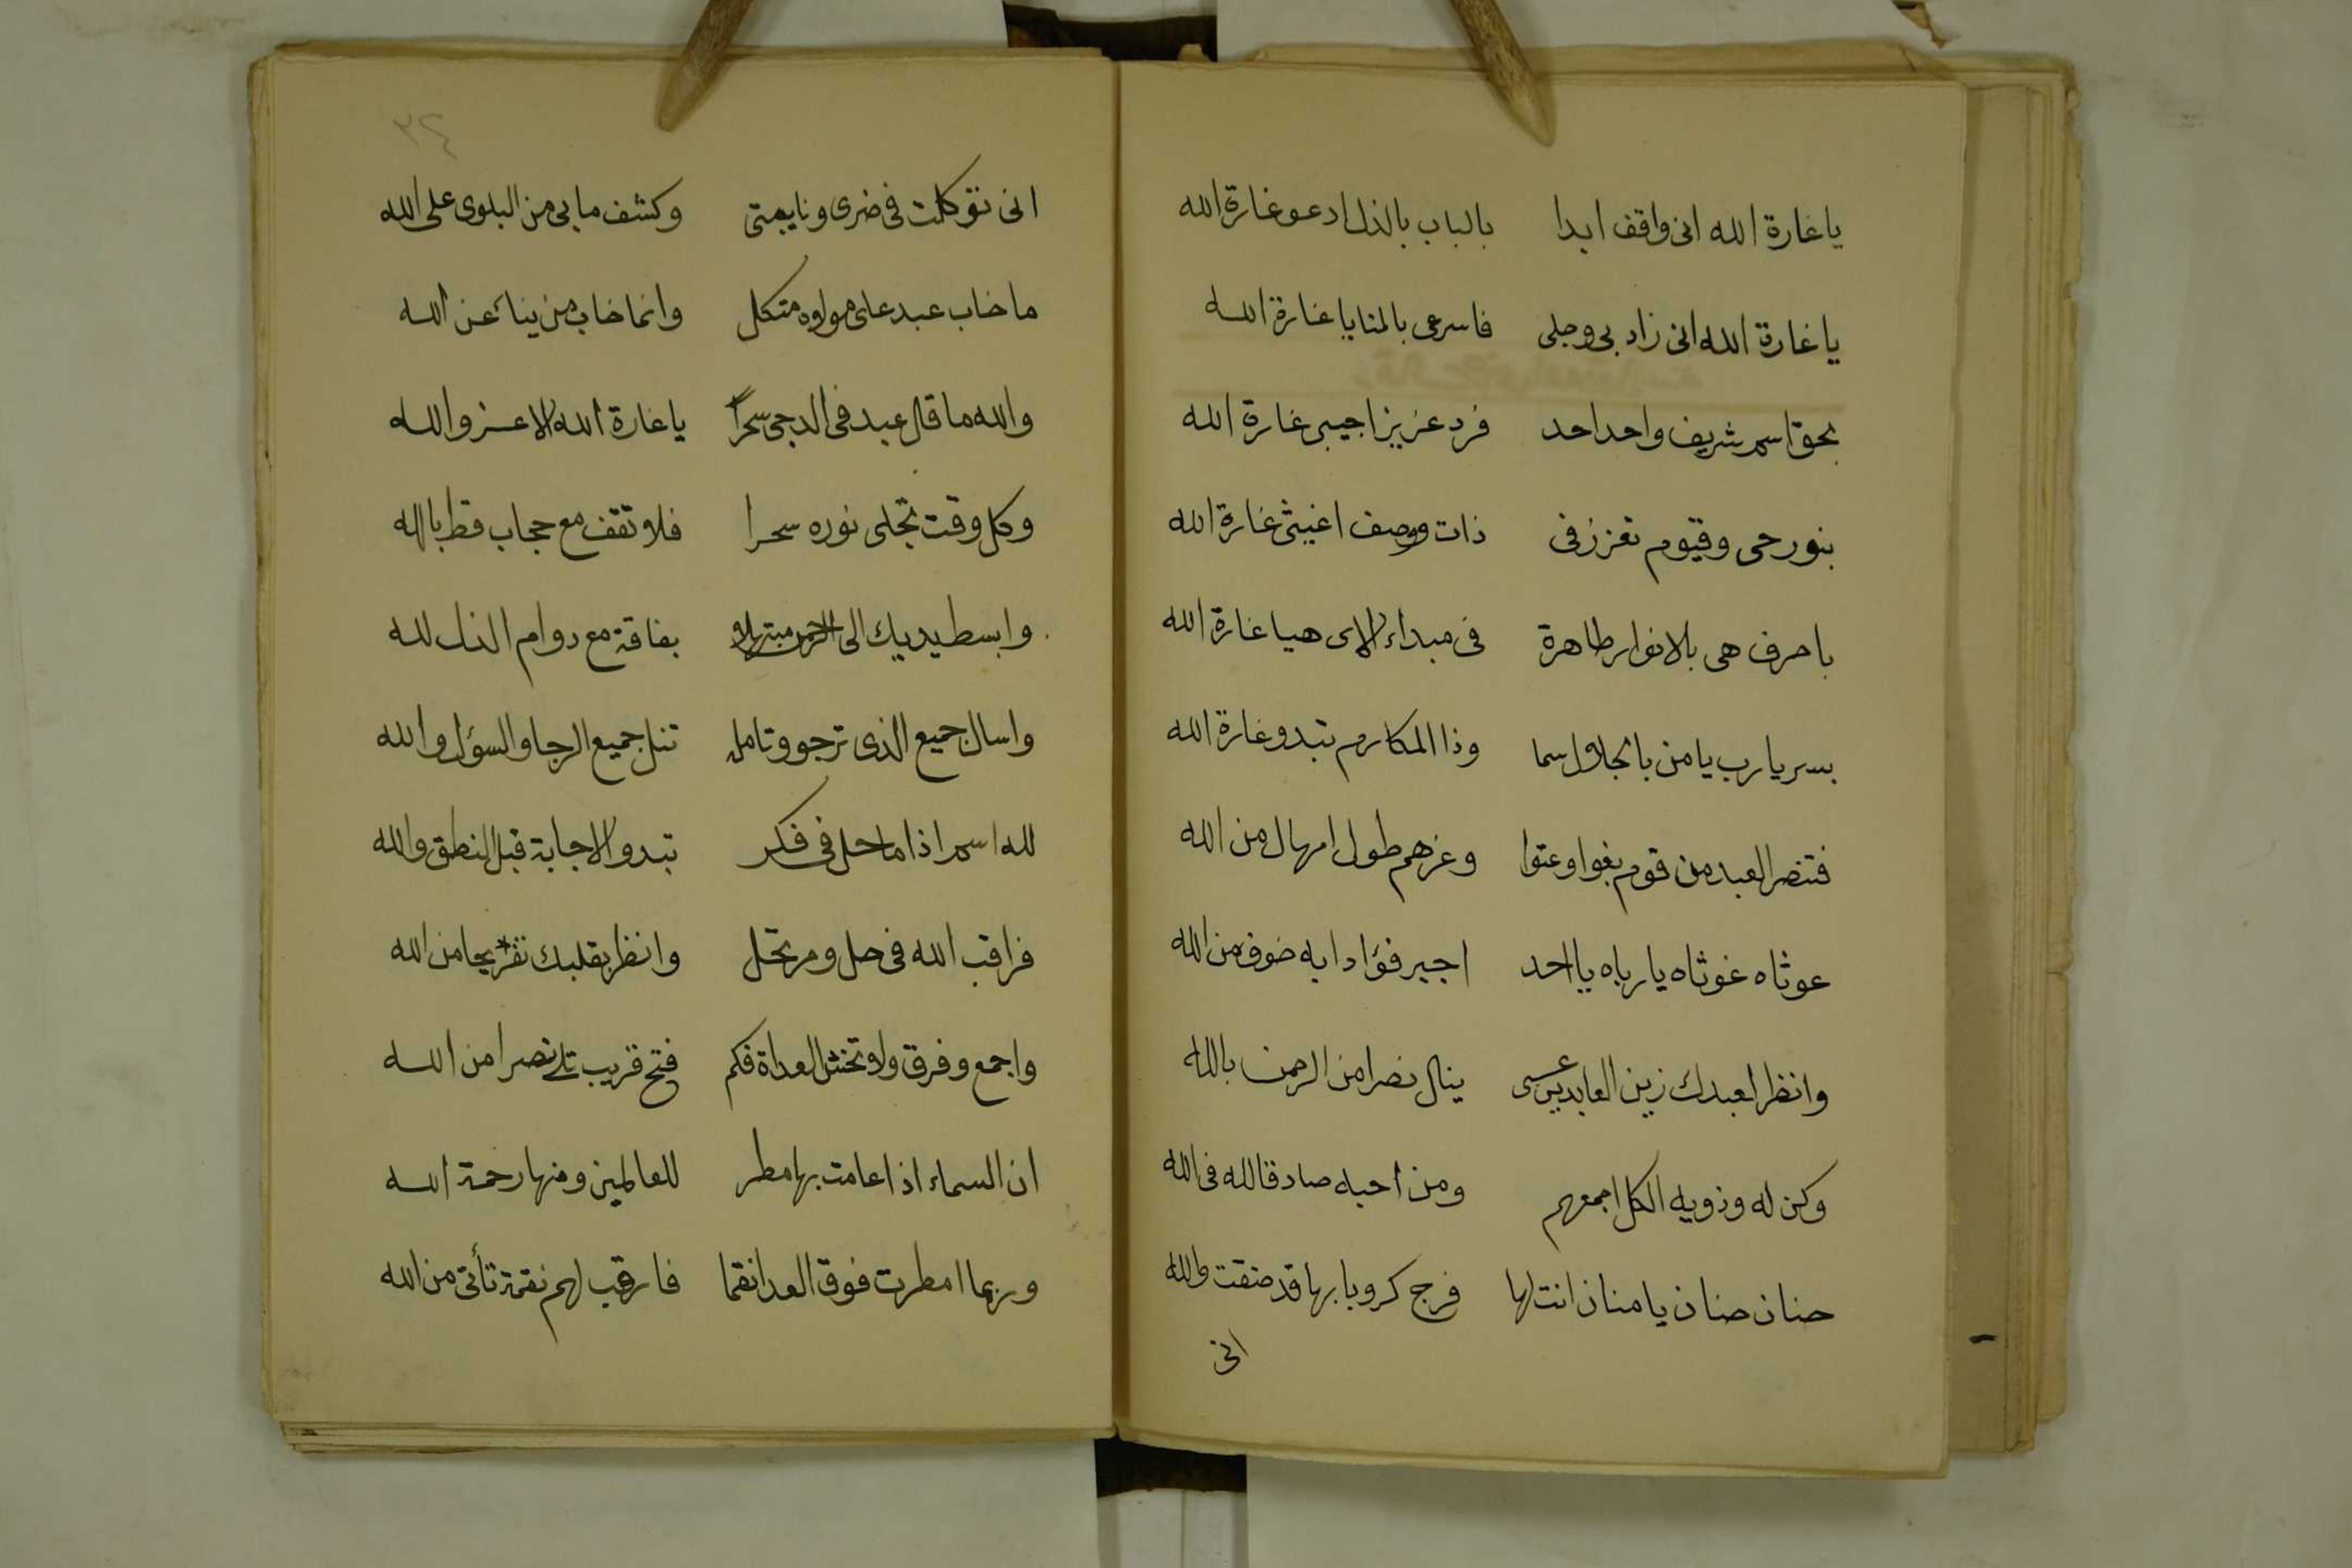 يا غارة الله انى واقف ابدا بالباب بالذل ادعو غارة الله
يا غارة الله انى زاد بى وجلى فاسرعى بالمنا يا غارة الله
بحق اسم شريف واحد احد فرد عزيز اجيبى غارة الله
بنور حى وقيوم تعزز فى ذات ووصف اغيثى غارة الله
باحرف هى بالانوار طاهرة فى مبداء الاى هيا غارة الله
بسر يا رب يا من بالجلال سما وذا المكارم تبدو غارة الله
فتنصر العبد من قوم بغوا وعتوا وغرهم طول امهال من الله
عوثاه غوثاه يا رباه يا احد اجير فؤادا به خوف من الله
وانظر لعبدك زين العابدين عسى ينال نصرا من الرحمن بالله
وكن له وذويه الكل اجمعهم ومن احبه صادقا لله فى الله
حنان حنان يا منان انت لها فرج كروبا بها قد ضقت والله
انى
٣٤
انى توكلت فى ضرى ونايبتى وكشف ما بى من البلوى على الله
ما خاب عبد على مولاه متكل وانما خاب من يناء عن الله
والله ما قال عبد فى الدجى سحرًا يا غارة الله الا عز والله
وكل وقت تجلى نوره سحرا فلا تقف مع حجاب قط بالله
وابسط يديك الى الرحمن مبتهلا بفاقة مع دوام الذل لله
واسال جميع الذى ترجو وتامله تنل جميع الرجا والسؤل والله
لله اسم اذا ما حل فى فكر تبدو الاجابة قبل النطق والله
فراقب الله فى حل ومرتحل وانظر بقلبك تفريجا من الله
واجمع وفرق ولا تخش العداة فكم فتح قريب تلى نصرا من الله
ان السماء اذا عامت بها مطر للعالمين ومنها رحمة الله
وربما امطرت فوق العدا نقما فارقب لهم نقمة تأتى من الله